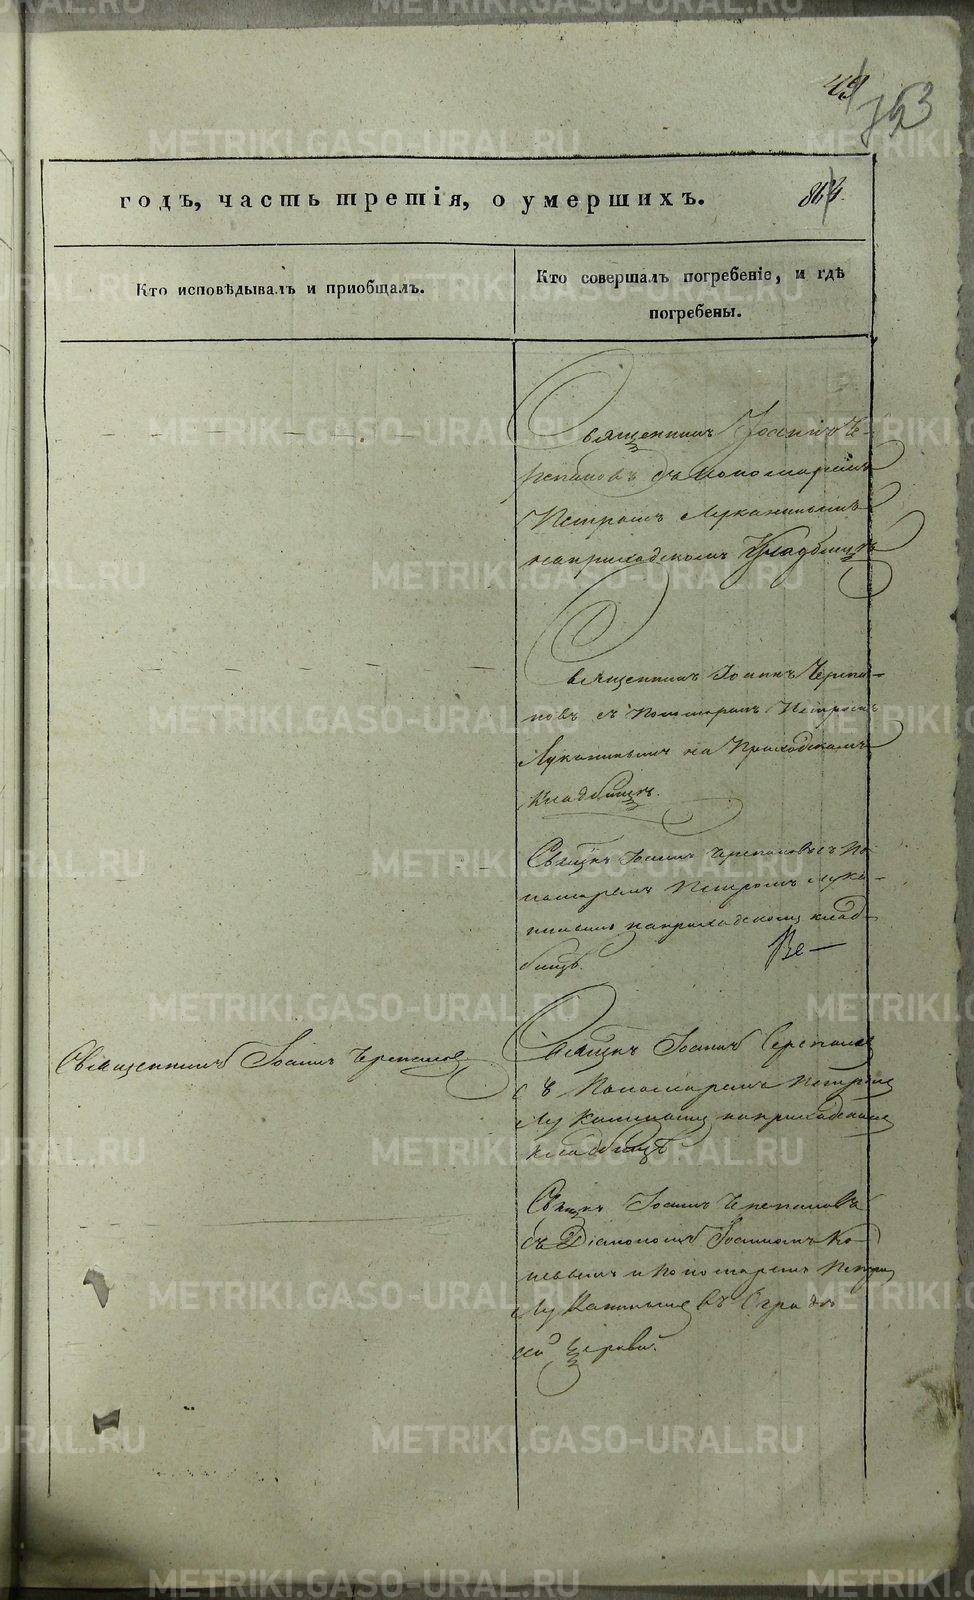 годъ, часть третія, о умершихъ.
Кто исповѣдывалъ и приобщалъ.
Кто совершалъ погребеніе, и гдѣ
погребены.
Священникъ Іоаннъ Че-
репановъ съ Пономаремъ
Петромъ Луканинымъ
на приходскомъ Кладбищѣ
Священникъ Іоаннъ Черепа-
новъ съ Пономаремъ Петромъ
Луканинымъ на Приходскомъ
Кладбищѣ.
Свящнъ Іоаннъ Черепановъ съ По-
номаремъ Петромъ Лука-
нинымъ на приходскомъ клад-
бищѣ.
Священникъ Іоаннъ Черепановъ
Свящнъ Іоаннъ Черепановъ
съ Пономаремъ Петромъ
Луканинымъ на приходскомъ
кладбищѣ
Свящнъ Іоаннъ Черепановъ
съ Діакономъ Іоанномъ
и Пономаремъ Петромъ
Луканинымъ въ Оград
Церкви.
METRIKI.GASO-URAL.RU